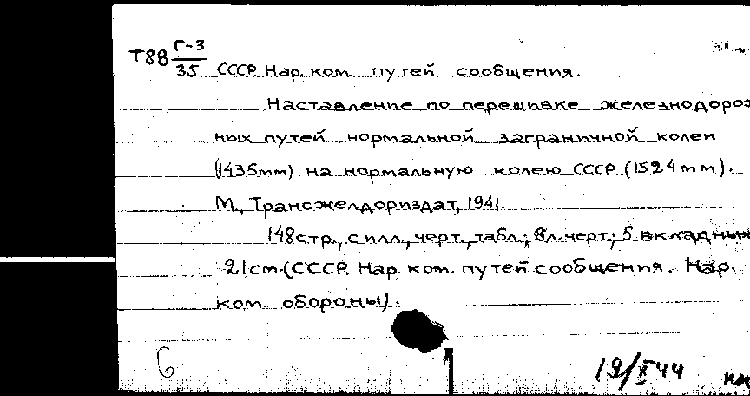 Т88 Г-3/35 СССР. Нар. ком. путей сообщения.
Наставление по перешивке железнодорож
ных путей нормальной заграничной колеи
(1435mm) на нормальную колею СССР (1524mm).
М., Трансжелдориздат, 1941
148 стр., с илл., черт., табл.; 8 л. черт.; 5 вкладных
21 cm. (СССР. Нар. ком. путей сообщения. Нар.
ком. обороны).
6
19/I 44